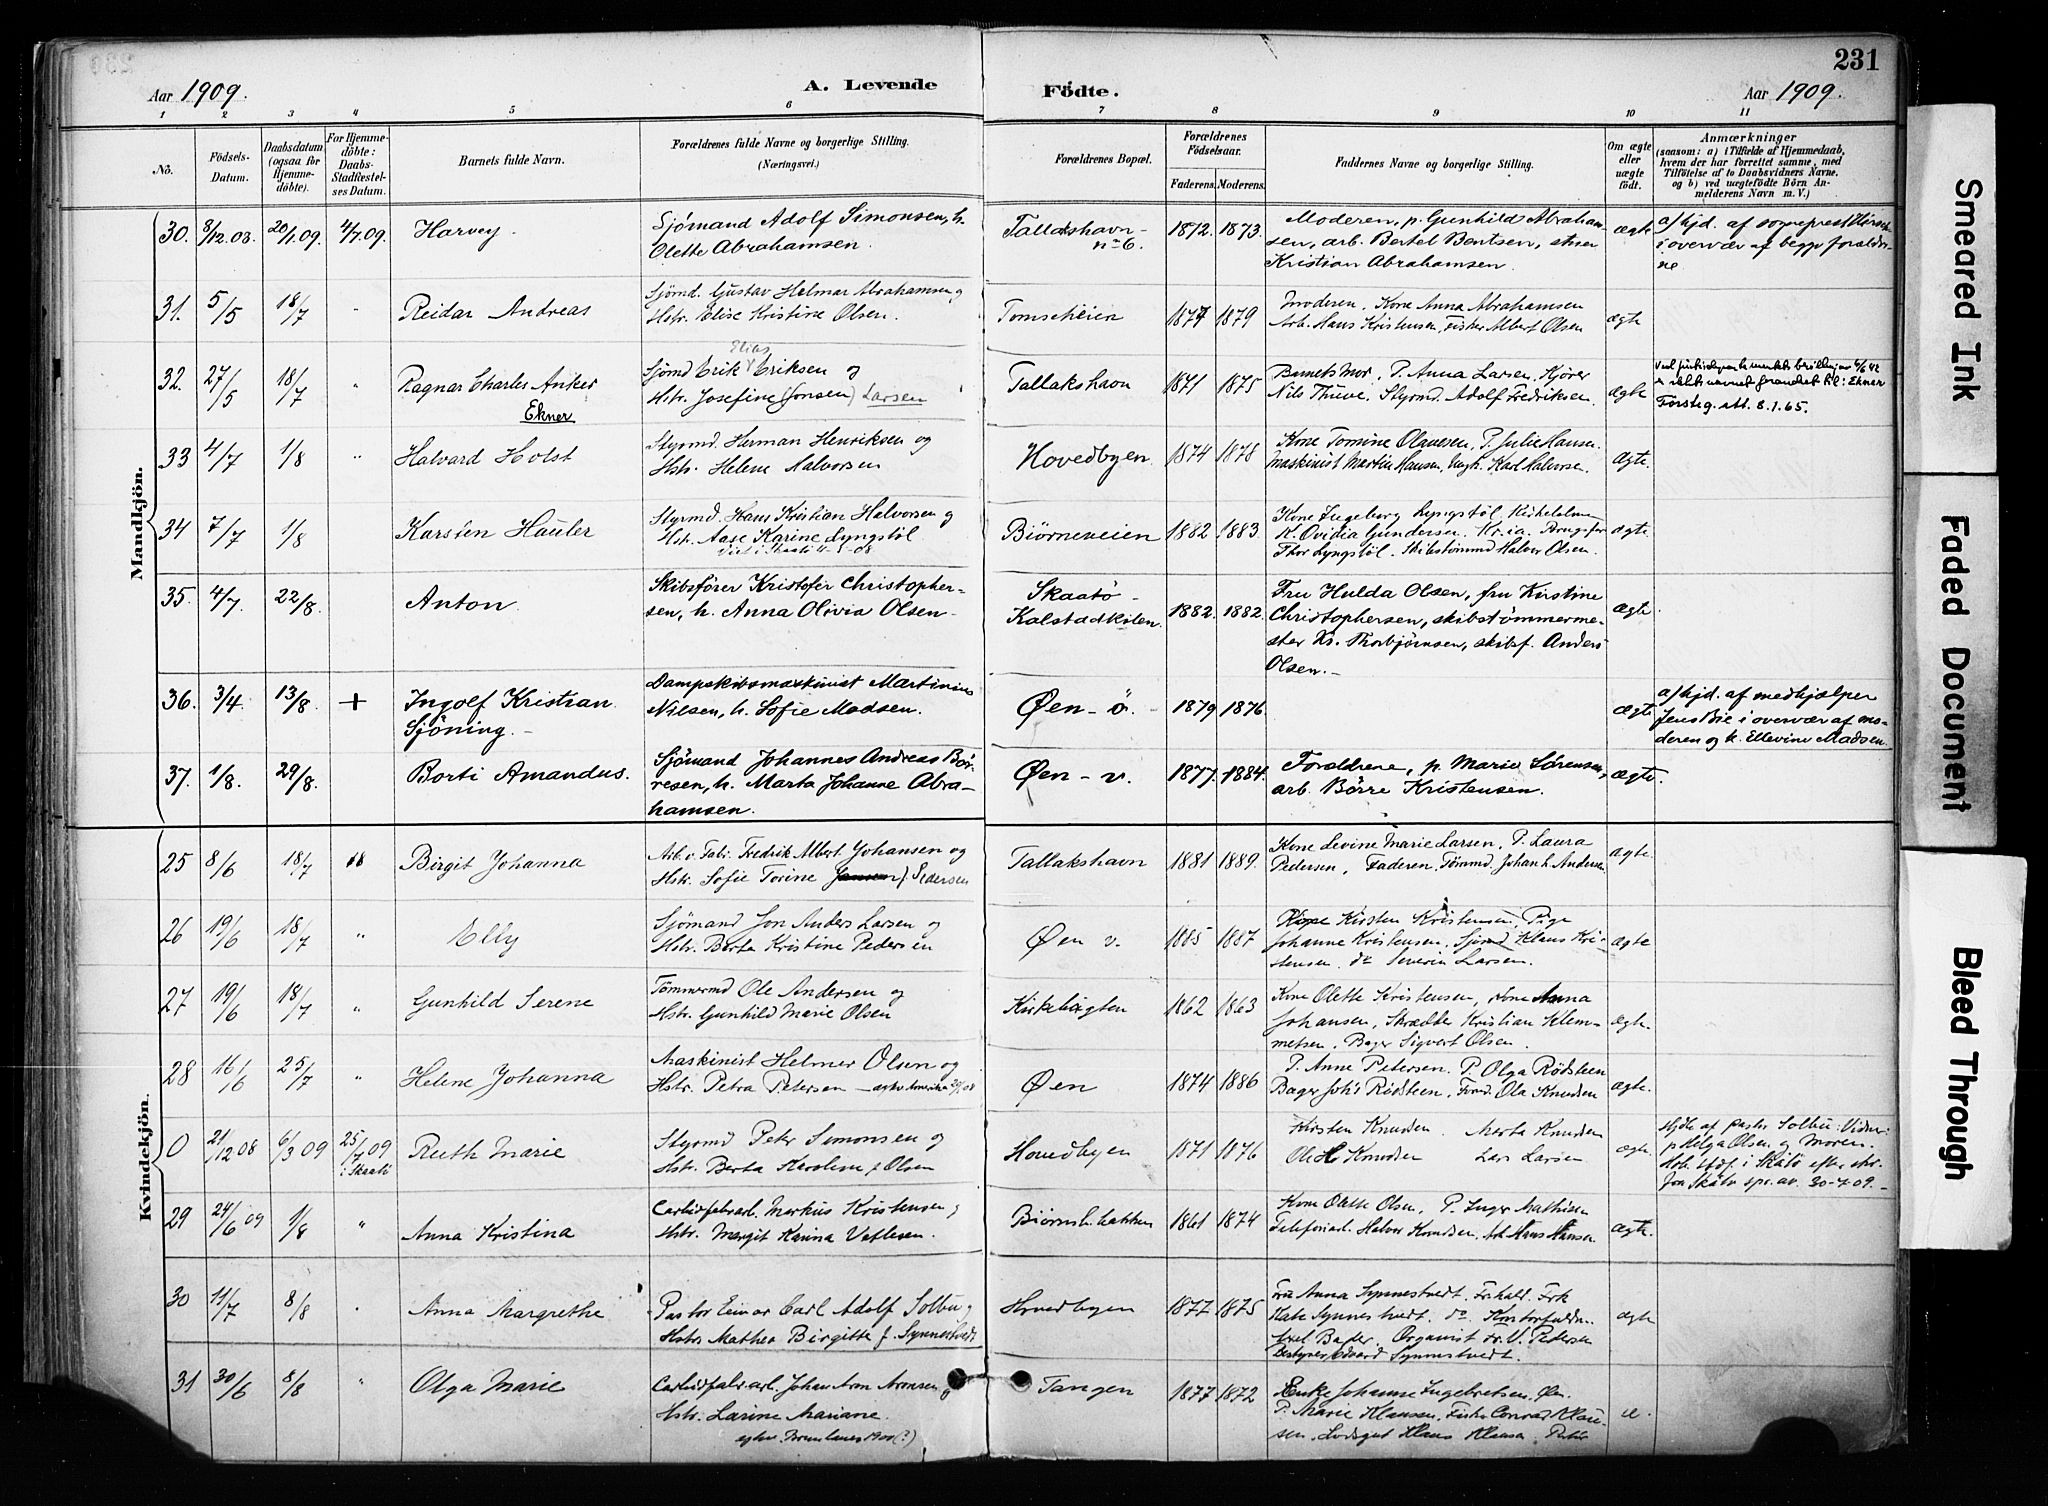 231
Aar 1909.
A. Levende Födte.
Aar 1909.
1 2 3 4 5 6 7 8 9 10 11
No.
Födsels-Datum.
Daabsdatum (ogsaa for Hjemme-döbte).
For Hjemme-döbte: Daabs-Stadfæstel-ses Datum.
Barnets fulde Navn.
Forældrenes fulde Navne og borgerlige Stilling.
(Næringsvei.)
Forældrenes Bopæl.
Forældrenes Födselsaar.
Faderens. Moderens.
Faddernes Navne og borgerlige Stilling.
Om ægte eller uægte födt.
Anmærkninger
(saasom: a) i Tilfælde af Hjemmedaab,
hvem der har forrettet samme, med
Tilföielse af to Daabsvidners Navne,
og b) ved uægtefödte Börn An-
melderens Navn m. V.)
Mandkjön.
30. 8/12.08. 20/1.09. 4/7.09. Harvey
Sjømand Adolf Simonsen, h.
Olette Abrahamsen.
Tallakshavn - n° 6. 1872. 1873.
Moderen, p. Gunhild Abraham-
sen, arb. Bertel Bentsen,
Kristian Abrahamsen.
ægte
a/ hjd. af sogneprest
i overvær af begge foreldre-
ne
31. 5/5 18/7 " Reidar Andreas
Sjömd. Gustav Helmar Abrahamsen og
Hstr. Elise Kristine Olsen.
Tomseheien 1877 1879
Moderen. Kone Anna Abrahamsen
Arb. Hans Kristensen, Fisker Albert Olsen
ægte
32. 27/5 18/7 " Ragnar Charles Anker
Ekner
Elias
Sjömd Erik Eriksen og
Hstr. Josefine (Jonsen) Larsen
Tallakshavn 1871 1875
Barnets Mor, P. Anna Larsen,
Nils Thuve. Styrmd. Adolf Fredriksen.
ægte
til: Ekner
8.1.65.
33 4/7 1/8 " Halvard Holst
Styrmd. Herman Henriksen og
Hstr. Helene Halvorsen
Hovedbyen 1874 1878
Kone Tomine Olavesen, P. Julie Hansen.
Maskinist Martin Hansen, Ungk. Karl Halvorsen.
ægte.
34 7/7 1/8 Karsten Hauler
Styrmd. Hans Kristian Halvorsen og
Hstr. Aase Karine Lyngstöl
Biörneveien 1882 1883.
Kone Ingeborg Lyngstöl,
K. Ovidia Gundersen. Kr.ia.
Thor Lyngstöl. Skibstömmd Halvor Olsen.
ægte.
35. 4/7. 22/8. Anton.
Skibsfører Kristofer Christopher-
sen, h. Anna Olivia Olsen -
Skaatö -
Kalstadkilen. 1882. 1882.
Fru Hulda Olsen, fru Kirstine
Christophersen, skibstømmerme-
ster Kr. Thorbjørnsen, skibsf. Anders
Olsen. -
ægte
36. 3/4. 13/8. + Ingolf Kristian
Sjöning. -
Dampskibsmaskinist Martinius
Nilsen, h. Sofie Madsen.
Øen - ö. 1879 1876.
ægte
a/ hjd. af medhjælper
Jens Bie i overvær af mo-
deren og k. Ellevine Madsen.
37. 1/8. 29/8. Borti Amandus.
Sjømand Johannes Andreas Bör-
resen, h. Marta Johanne Abra-
hamsen.
Øen - v. 1877. 1884.
Forældrene, p. Marie Sørensen,
arb. Børre Kristensen.
ægte.
Kvindekjön.
25 8/6 18/7 18 Birgit Johanna
Arb. v. Fabr. Fredrik Albert Johansen og
Hstr. Sofie Torine Pedersen
Tallakshavn 1881 1889.
Kone Levine Marie Larsen, P. Laura
Pedersen, Faderen, Tömmd. Johan L. Andersen
ægte.
26 19/6 18/7 " Elly
Sjömand Jon Anders Larsen og
Hstr. Berta Kristine Pedersen
Øen v. 1885 1887
Kone Kirsten Kristensen, Pige
Johanne Kristensen, Sjömd Klaus Kri-
stensen. do Severin Larsen.
ægte
27 19/6 18/7 " Gunhild Serene
Tömmermd Ole Andersen og
Hstr. Gunhild Marie Olsen
Kirkebugten 1862 1863
Kone Olette Kristensen, Kone Anna
Johansen, Skrædder Kristian Klem-
metsen, Bager Sigvert Olsen.
ægte.
28 16/6 25/7 " Helene Johanna
Maskinist Helmer Olsen og
Hstr. Petra Petersen -
Øen 1874 1886
P. Anne Petersen. P. Olga Rödsteen
Bager Johs Rödsteen, Ola Knudsen
ægte.
0 21/12 08 6/3 09 25/7 09 i Skaatö Ruth Marie
Styrmd Peter Simonsen og
Hstr. Berta Karoline f. Olsen
Hovedbyen 1871 1876
Kirsten Knudsen. Marta Knudsen
Ole K Knudsen Lars Larsen
ægte.
Hjdt af pastor Solbu: Vidner:
p Helga Olsen og Moren.
i Skåtö efter
fra Skåtö spr. av. 30-7-09. -
29 24/6 09 1/8 " Anna Kristina
Carbidfabrarb. Markus Kristensen og
Hstr. Margit Karina Vetlesen.
Biörnsb.bakken 1861 1874
Kone Olette Olsen, P. Inger Mathisen
Telefonarb. Halvor Knudsen, Arb Hans Hansen
ægte.
30 11/7 8/8 " Anna Margrethe
Pastor Einar Carl Adolf Solbu og
Hstr. Mathea Birgitte f. Synnestvedt
Hovedbyen 1877 1875
Fru Anna Synnestvedt. Frhald. Frk
Kate Synnestvedt. do
Axel Bader, Organist Fr. V. Pedersen
Bestyrer Edvard Synnestvedt.
ægte
31 30/6 8/8 Olga Marie
Carbidfabr.arb. Johan Arn Aronsen og
Hstr. Larine Mariane.
1900(?)
Tangen 1877 1872
Enke Johanne Ingebretsen, Øen.
P. Marie Klausen, Fisker Conrad Klau-
sen, Lodsgut Klaus Klausen,
æ.
Smeared Ink
Faded Document
Bleed Through